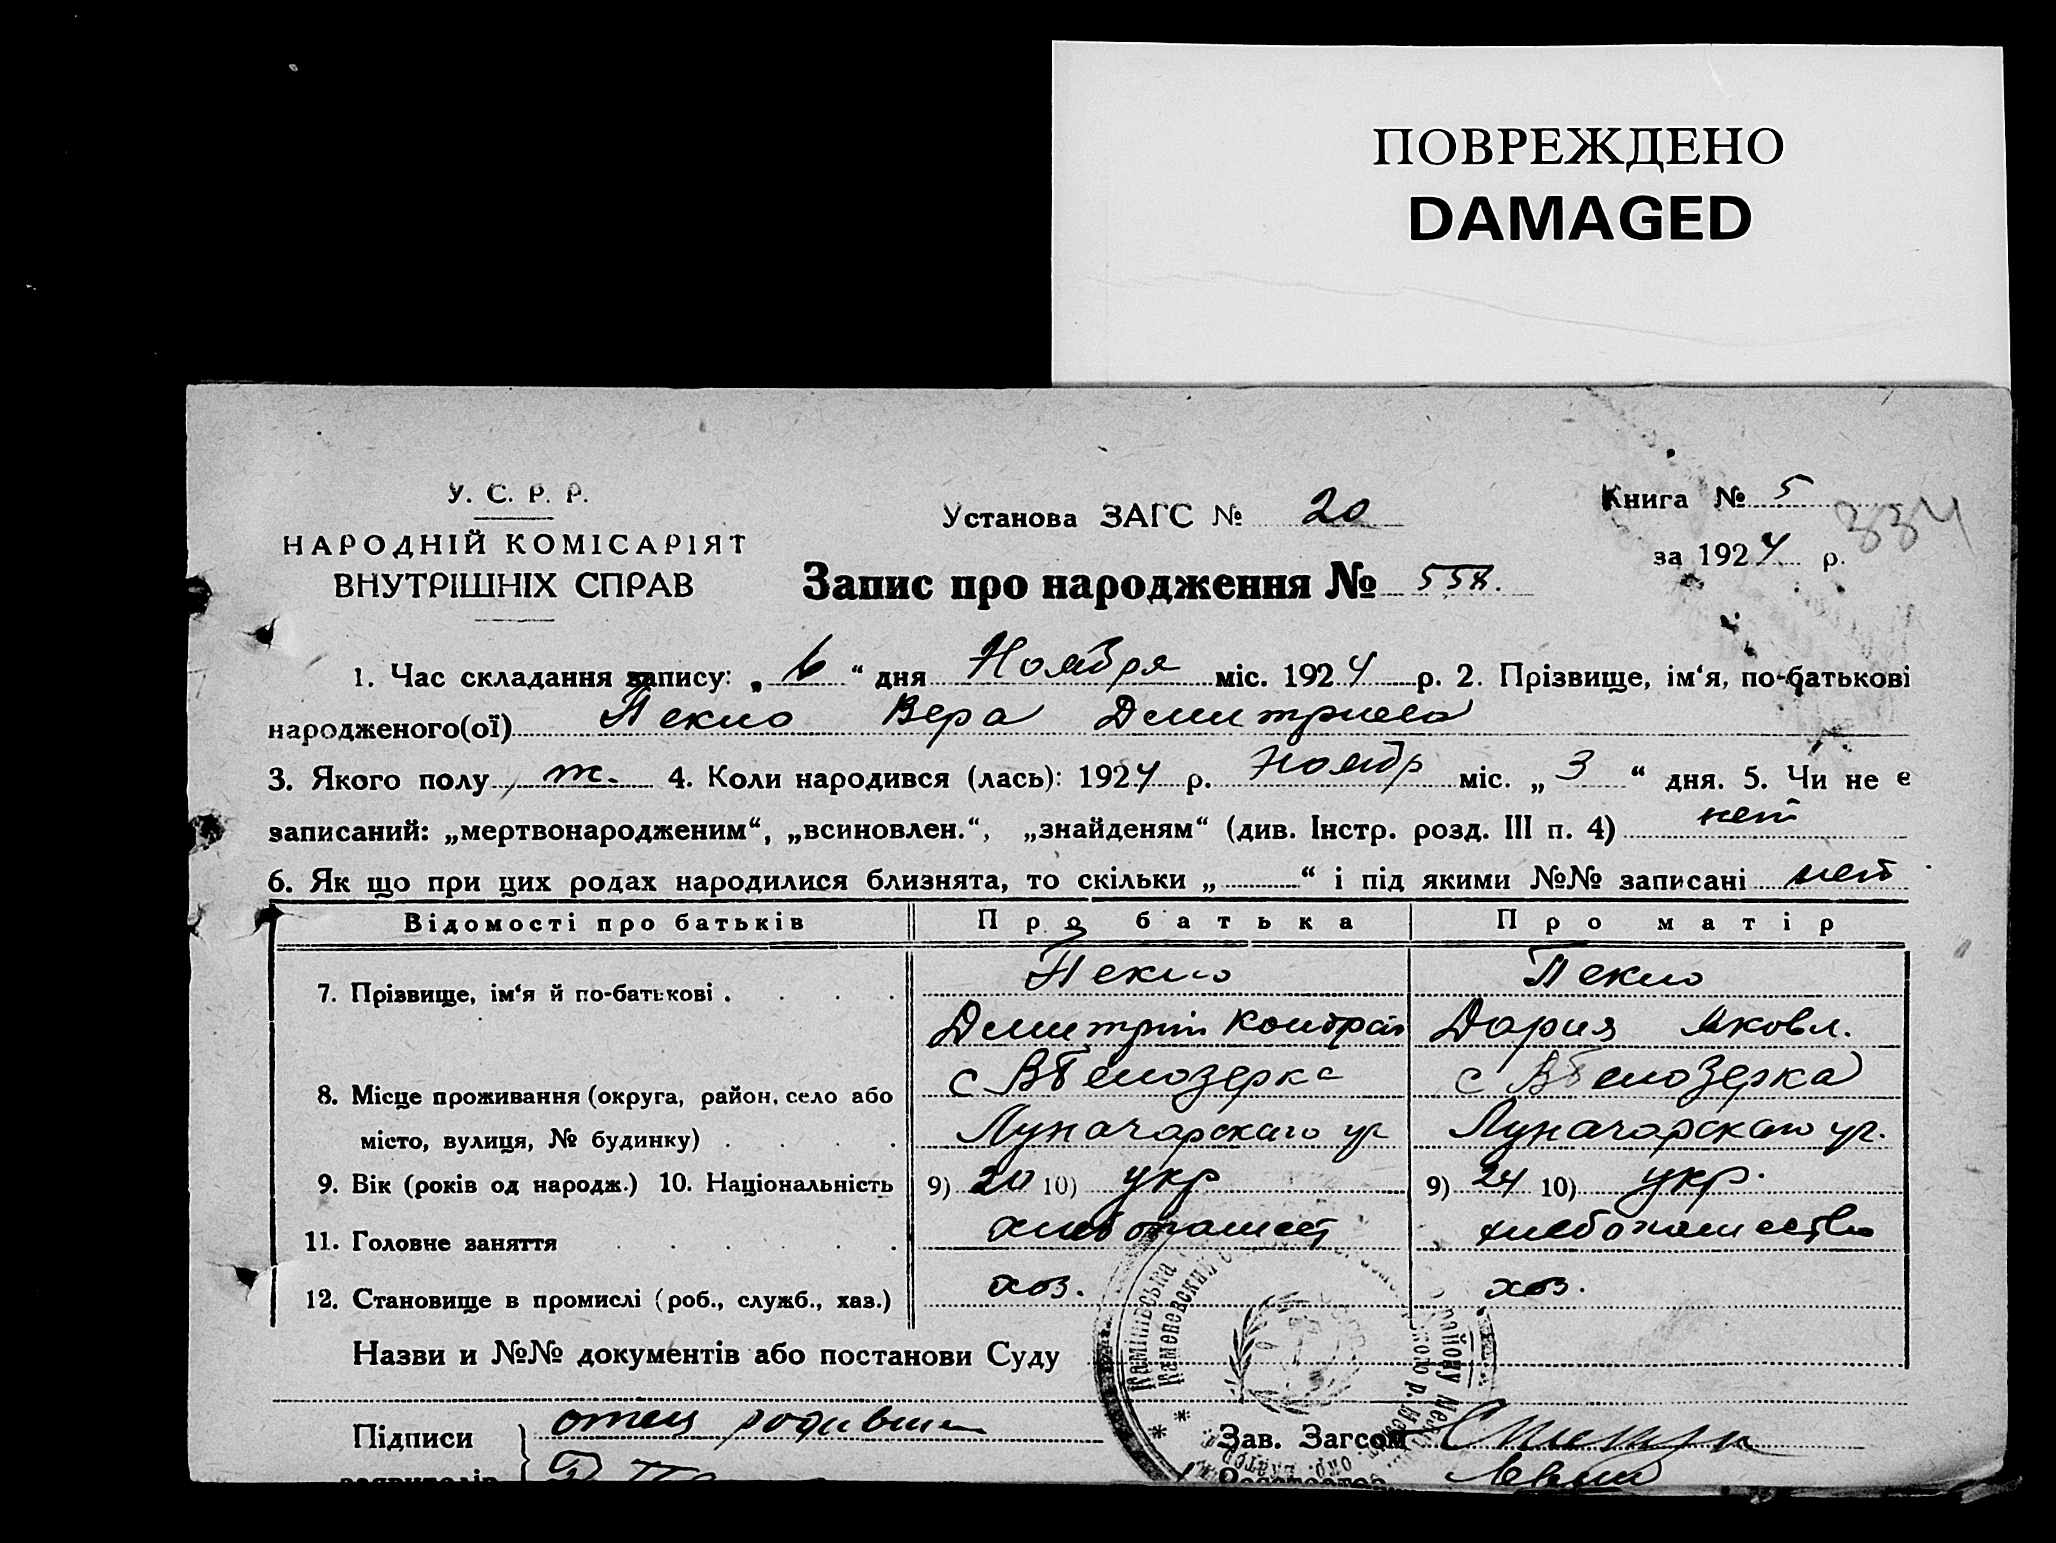 ПОВРЕЖДЕНО
DAMAGED
У. С. Р. Р.
НАРОДНІЙ КОМІСАРІЯТ
ВНУТРІШНІХ СПРАВ
Установа ЗАГС № 20
Книга № 5
334
за 1924 р.
Запис про народження № 558.
1. Час складання запису: „ 6 “ дня Ноября міс. 1924 р. 2. Прізвище, ім‘я, по-батькові
народженого(ої) Пекло Вера Дмитриева
3. Якого полу ж. 4. Коли народився (лась): 1924 р.Ноябр міс. „ 3 “ дня. 5. Чи не є
записаний: „мертвонародженим“, „всиновлен.“, „знайденям“ (див. Інстр. розд. III п. 4) нет
6. Як що при цих родах народилися близнята, то скільки „ “ і під якими №№ записані нет
Відомості про батьків Про батька Про матір
7. Прізвище, ім‘я й по-батькові . Пекло Пекло
Дмитрий Кондрат Дария Яковл.
8. Місце проживання (округа, район, село або с ВБелозерка с ВБелозерка
місто, вулиця, № будинку) Луначарскаго ул Луначарскаго ул.
9. Вік (років од народж.) 10. Національність 9) 20 10) укр 9) 24 10) укр.
11. Головне заняття хлебопашест хлебопашество
12. Становище в промислі (роб., служб., хаз.) хоз. хоз.
Назви и №№ документів або постанови Суду
Підписи отец родивш Зав. Загсом
заявителів
Камінська
Каменевский